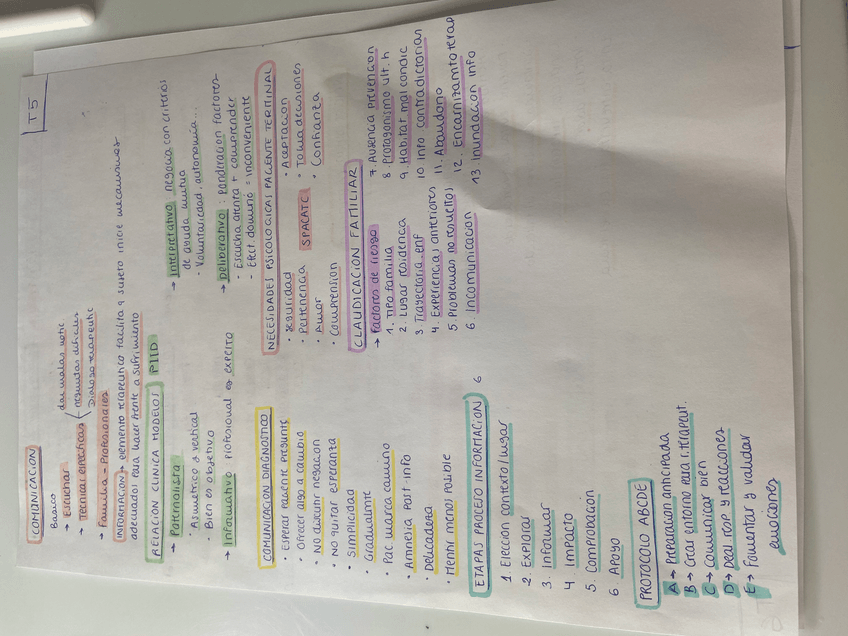 T5
COMUNICACION
Basico
→ Escuchar
→ Tecnicas especificas
dar malas notic
respuestas dificiles
Dialogo terapeutic
→ Familia - Profesionales
INFORMACION → elemento terapeutico facilita q sujeto inicie mecanismos
adecuados para hacer frente a sufrimiento
RELACION CLINICA MODELOS PIID
→ Paternalista
· Asimetrico o vertical
· Bien es objetivo
→ Informativo profesional = experto
→ Interpretativo negocia con criterios
de ayuda mutua
· Voluntariedad, autonomia...
→ Deliberativo: ponderacion factores
· Escucha atenta + comprender
· Efect. domino = inconveniente
COMUNICACION DIAGNOSTICO
· Esperar paciente pregunte
· Ofrecer algo a cambio
· No discutir negacion
· No quitar esperanza
· Simplicidad
· Gradualmte
· Pac marca camino
· Amnesia post-info
· Delicadeza
· Mentir menos posible
NECESIDADES PSICOLOGICAS PACIENTE TERMINAL
· Seguridad
· Pertenencia
· Amor
· Comprension
SPACATC
· Aceptacion
· Toma decisiones
· Confianza
CLAUDICACION FAMILIAR
→ Factores de riesgo
1. Tipo familia
2 Lugar residencia
3 Trayectoria enf
4. Experiencias anteriores
5 Problemas no resueltos
6. Incomunicacion
7. Ausencia prevencion
8. Protagonismo ult. h
9. Habitat mal condic
10 Info contradictorias
11. Abandono
12. Encarnizamto terap
13 Inundacion info
ETAPAS PROCESO INFORMACION 6
1 Eleccion contexto/lugar
2 Explorar
3. Informar
4 Impacto
5. Comprobacion
6 Apoyo
PROTOCOLO ABCDE
A → Preparacion anticipada
B → Crear entorno para r. terapeut.
C → comunicar bien
D → Deal resp y reacciones
E → Fomentar y validar
emociones